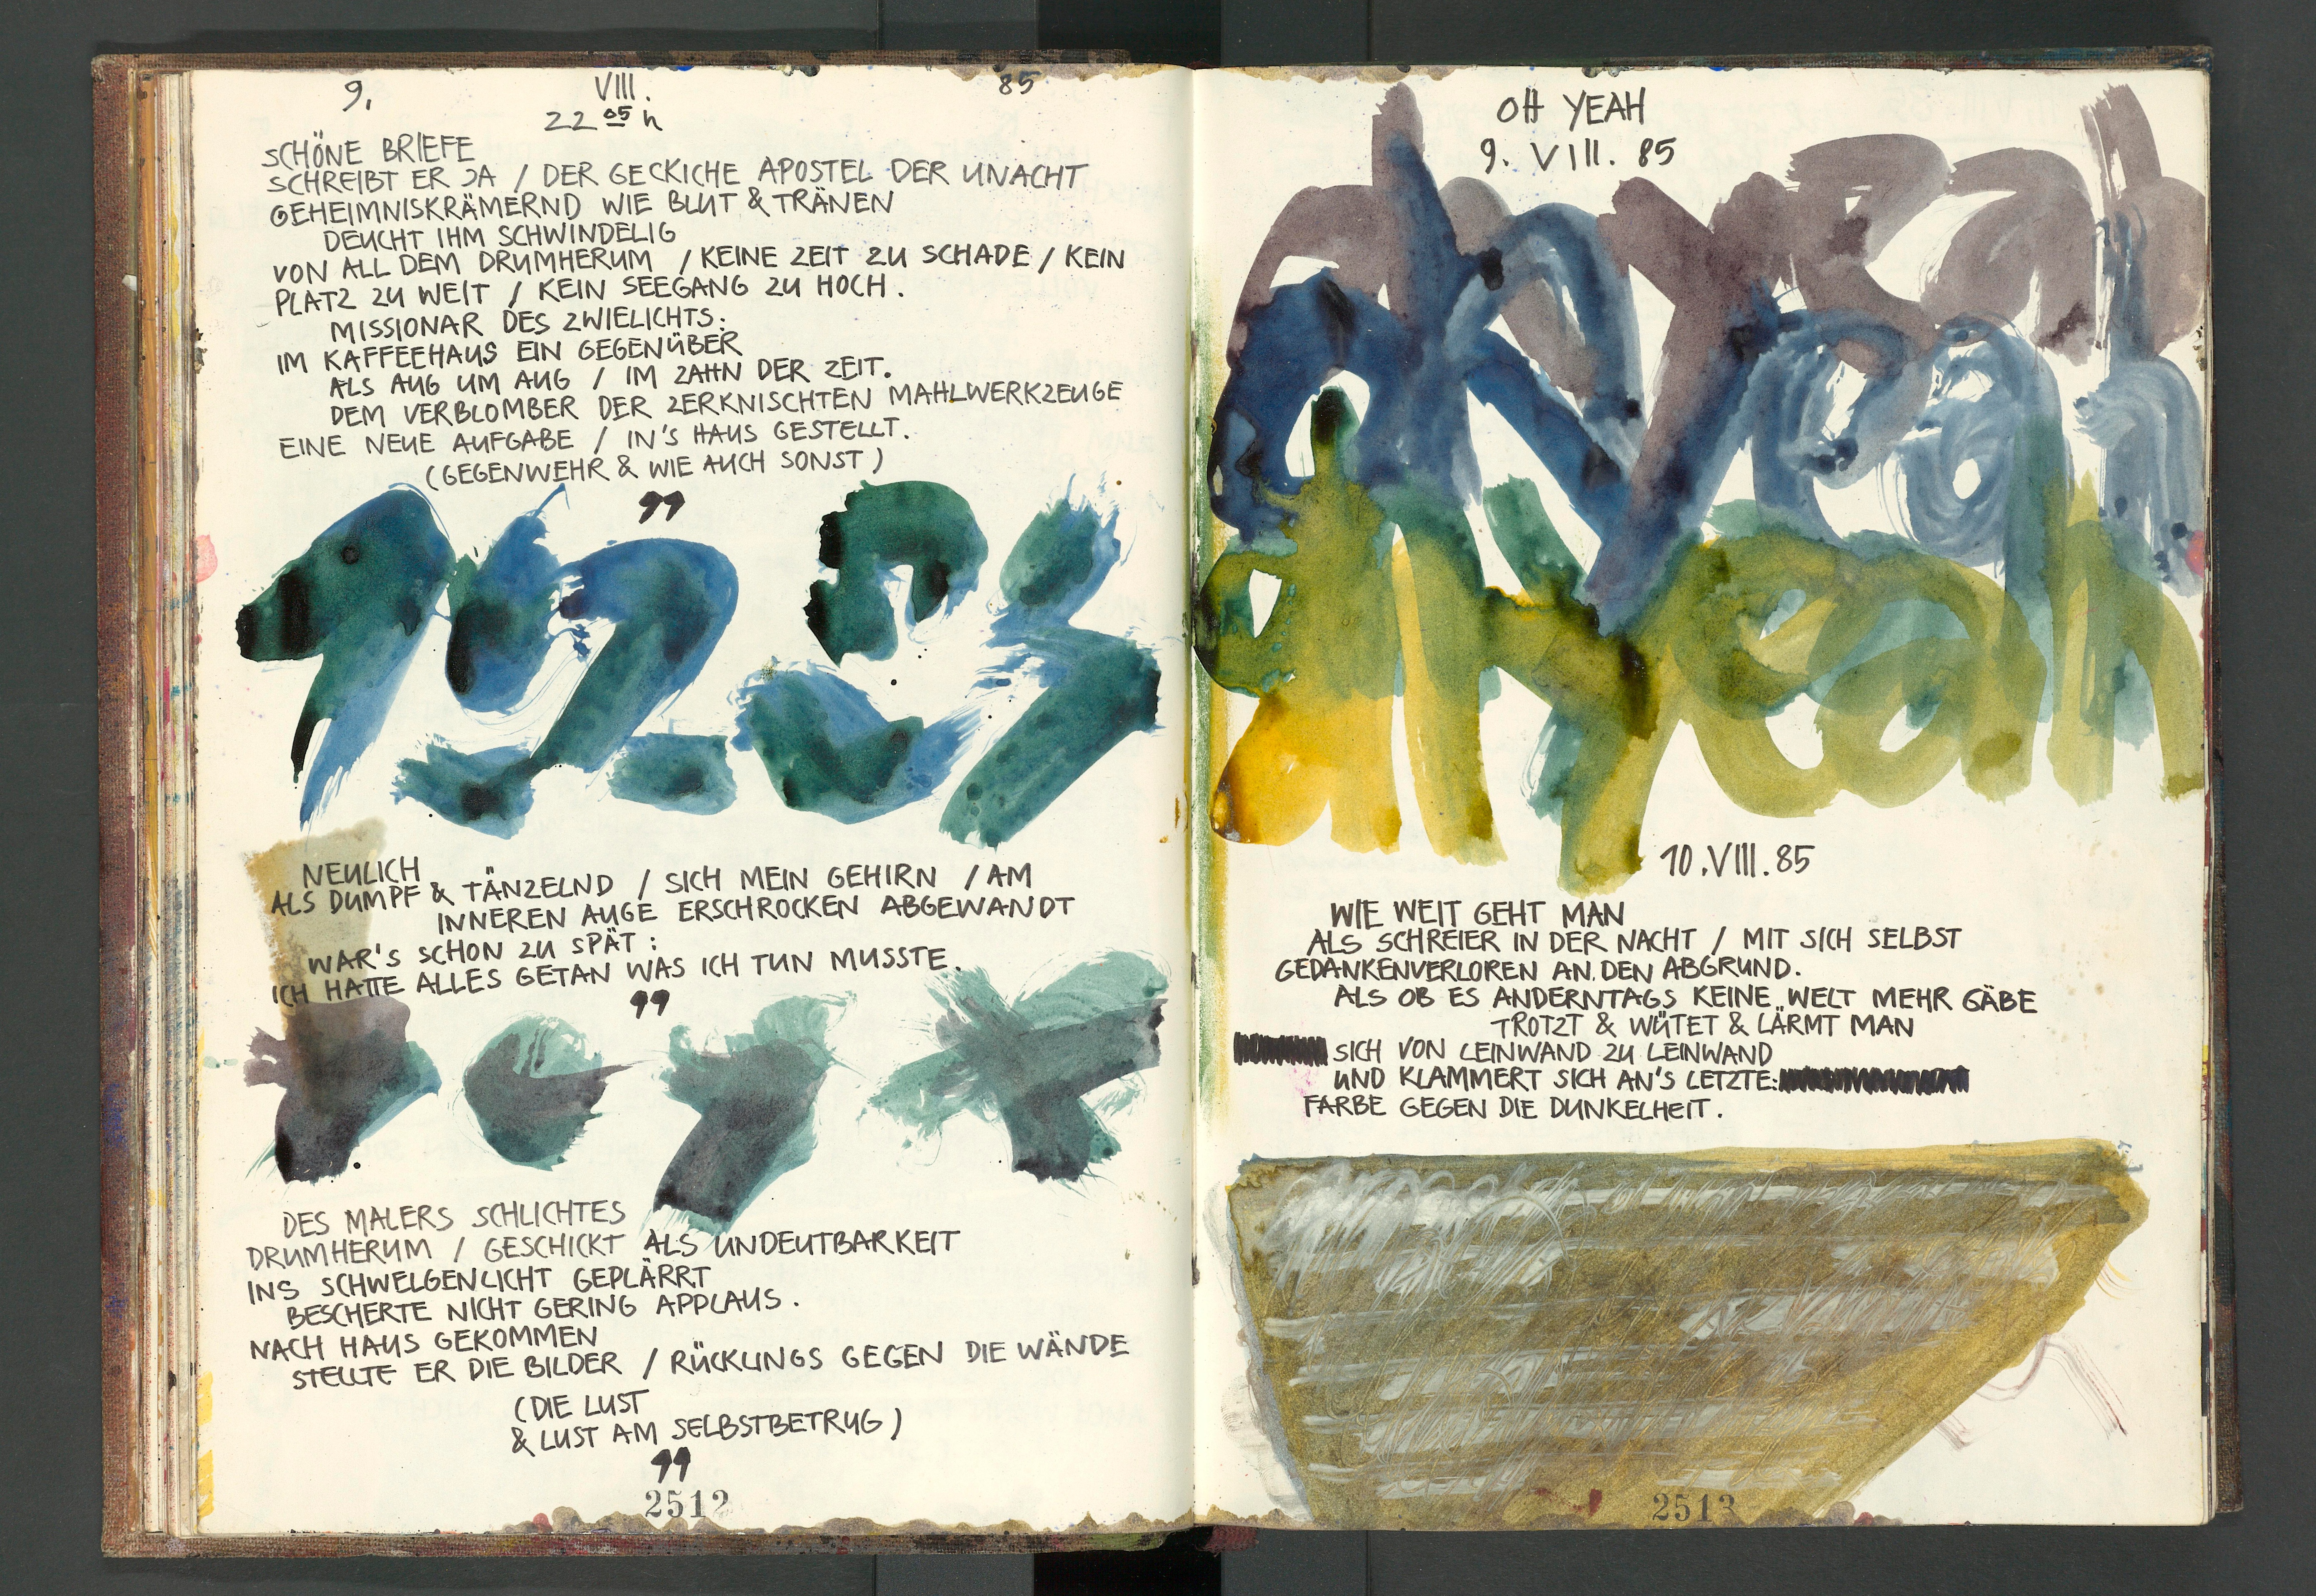 9. VIII. 85
22 05 h
SCHÖNE BRIEFE
SCHREIBT ER JA / DER GECKICHE APOSTEL DER UNACHT
GEHEIMNISKRÄMERND WIE BLUT & TRÄNEN
DEUCHT IHM SCHWINDELIG
VON ALL DEM DRUMHERUM / KEINE ZEIT ZU SCHADE / KEIN
PLATZ ZU WEIT / KEIN SEEGANG ZU HOCH.
MISSIONAR DES ZWIELICHTS:
IM KAFFEEHAUS EIN GEGENÜBER
ALS AUG UM AUG / IM ZAHN DER ZEIT.
DEM VERBLOMBER DER ZERKNISCHTEN MAHLWERKZEUGE
EINE NEUE AUFGABE / IN'S HAUS GESTELLT.
(GEGENWEHR & WIE AUCH SONST)
99
NEULICH
ALS DUMPF & TÄNZELND / SICH MEIN GEHIRN / AM
INNEREN AUGE ERSCHROCKEN ABGEWANDT
WAR'S SCHON ZU SPÄT:
ICH HATTE ALLES GETAN WAS ICH TUN MUSSTE.
99
DES MALERS SCHLICHTES
DRUMHERUM / GESCHICKT ALS UNDEUTBARKEIT
INS SCHWELGENLICHT GEPLÄRRT
BESCHERTE NICHT GERING APPLAUS.
NACH HAUS GEKOMMEN
STELLTE ER DIE BILDER / RÜCKLINGS GEGEN DIE WÄNDE
(DIE LUST
& LUST AM SELBSTBETRUG)
99
2512
OH YEAH
9. VIII. 85
oh yeah
oh yeah
oh yeah
10. VIII. 85
WIE WEIT GEHT MAN
ALS SCHREIER IN DER NACHT / MIT SICH SELBST
GEDANKENVERLOREN AN DEN ABGRUND.
ALS OB ES ANDERNTAGS KEINE WELT MEHR GÄBE
TROTZT & WÜTET & LÄRMT MAN
SICH VON LEINWAND ZU LEINWAND
UND KLAMMERT SICH AN'S LETZTE:
FARBE GEGEN DIE DUNKELHEIT.
2513